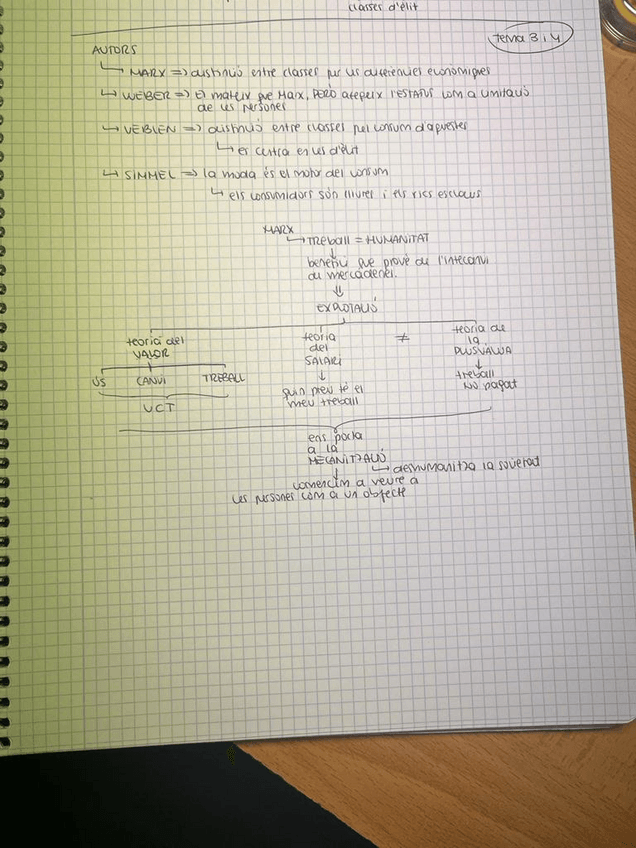 classes d'élit
Tema 3 i 4
AUTORS
↳ MARX => distinció entre classes per les diferències econòmiques
↳ WEBER => El mateix que Marx, PERÒ afegeix l'ESTATUS com a limitació
de les persones
↳ VEBLEN => distinció entre classes pel consum d'apuestes
↳ es centra en les d'élit
↳ SIMMEL => la moda és el motor del consum
↳ els consumidors són lliures i els rics esclaus
MARX
↳ TREBALL = HUMANITAT
↓
benefici que prové de l'intercanvi
de mercaderies.
⇓
EXPLOTACIÓ
teoria del
VALOR
ÚS CANVI TREBALL
UCT
teoria
del
SALARI
↓
quin preu té el
meu treball
≠
teoria de
la
PLUSVÀLUA
↓
treball
NO pagat
ens porta
a la
MECANITZACIÓ
↳ deshumanitza la societat
↓
comencem a veure a
les persones com a un objecte